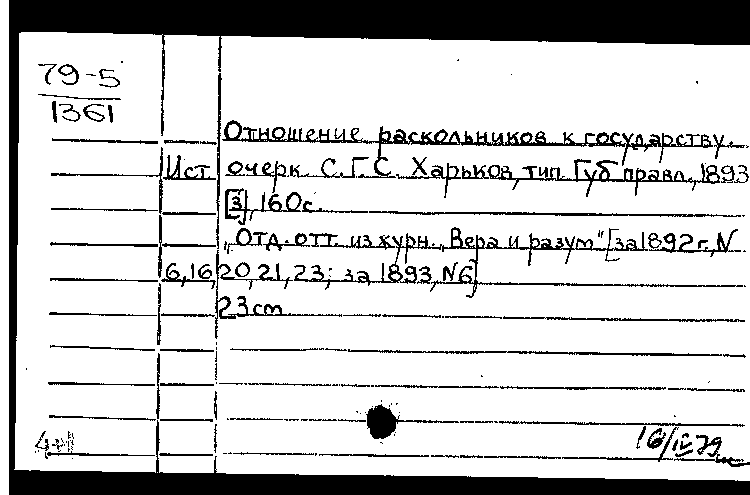 79-5
1361
Отношение раскольников к государству.
Ист. очерк С.Г.С. Харьков, тип. Губ. правл., 1893
[3], 160с.
„Отд. отт. из журн. „Вера и разум" [за 1892 г., N
6, 16, 20, 21, 23; за 1893, N6]
23 cm
4+1
16/IV 79